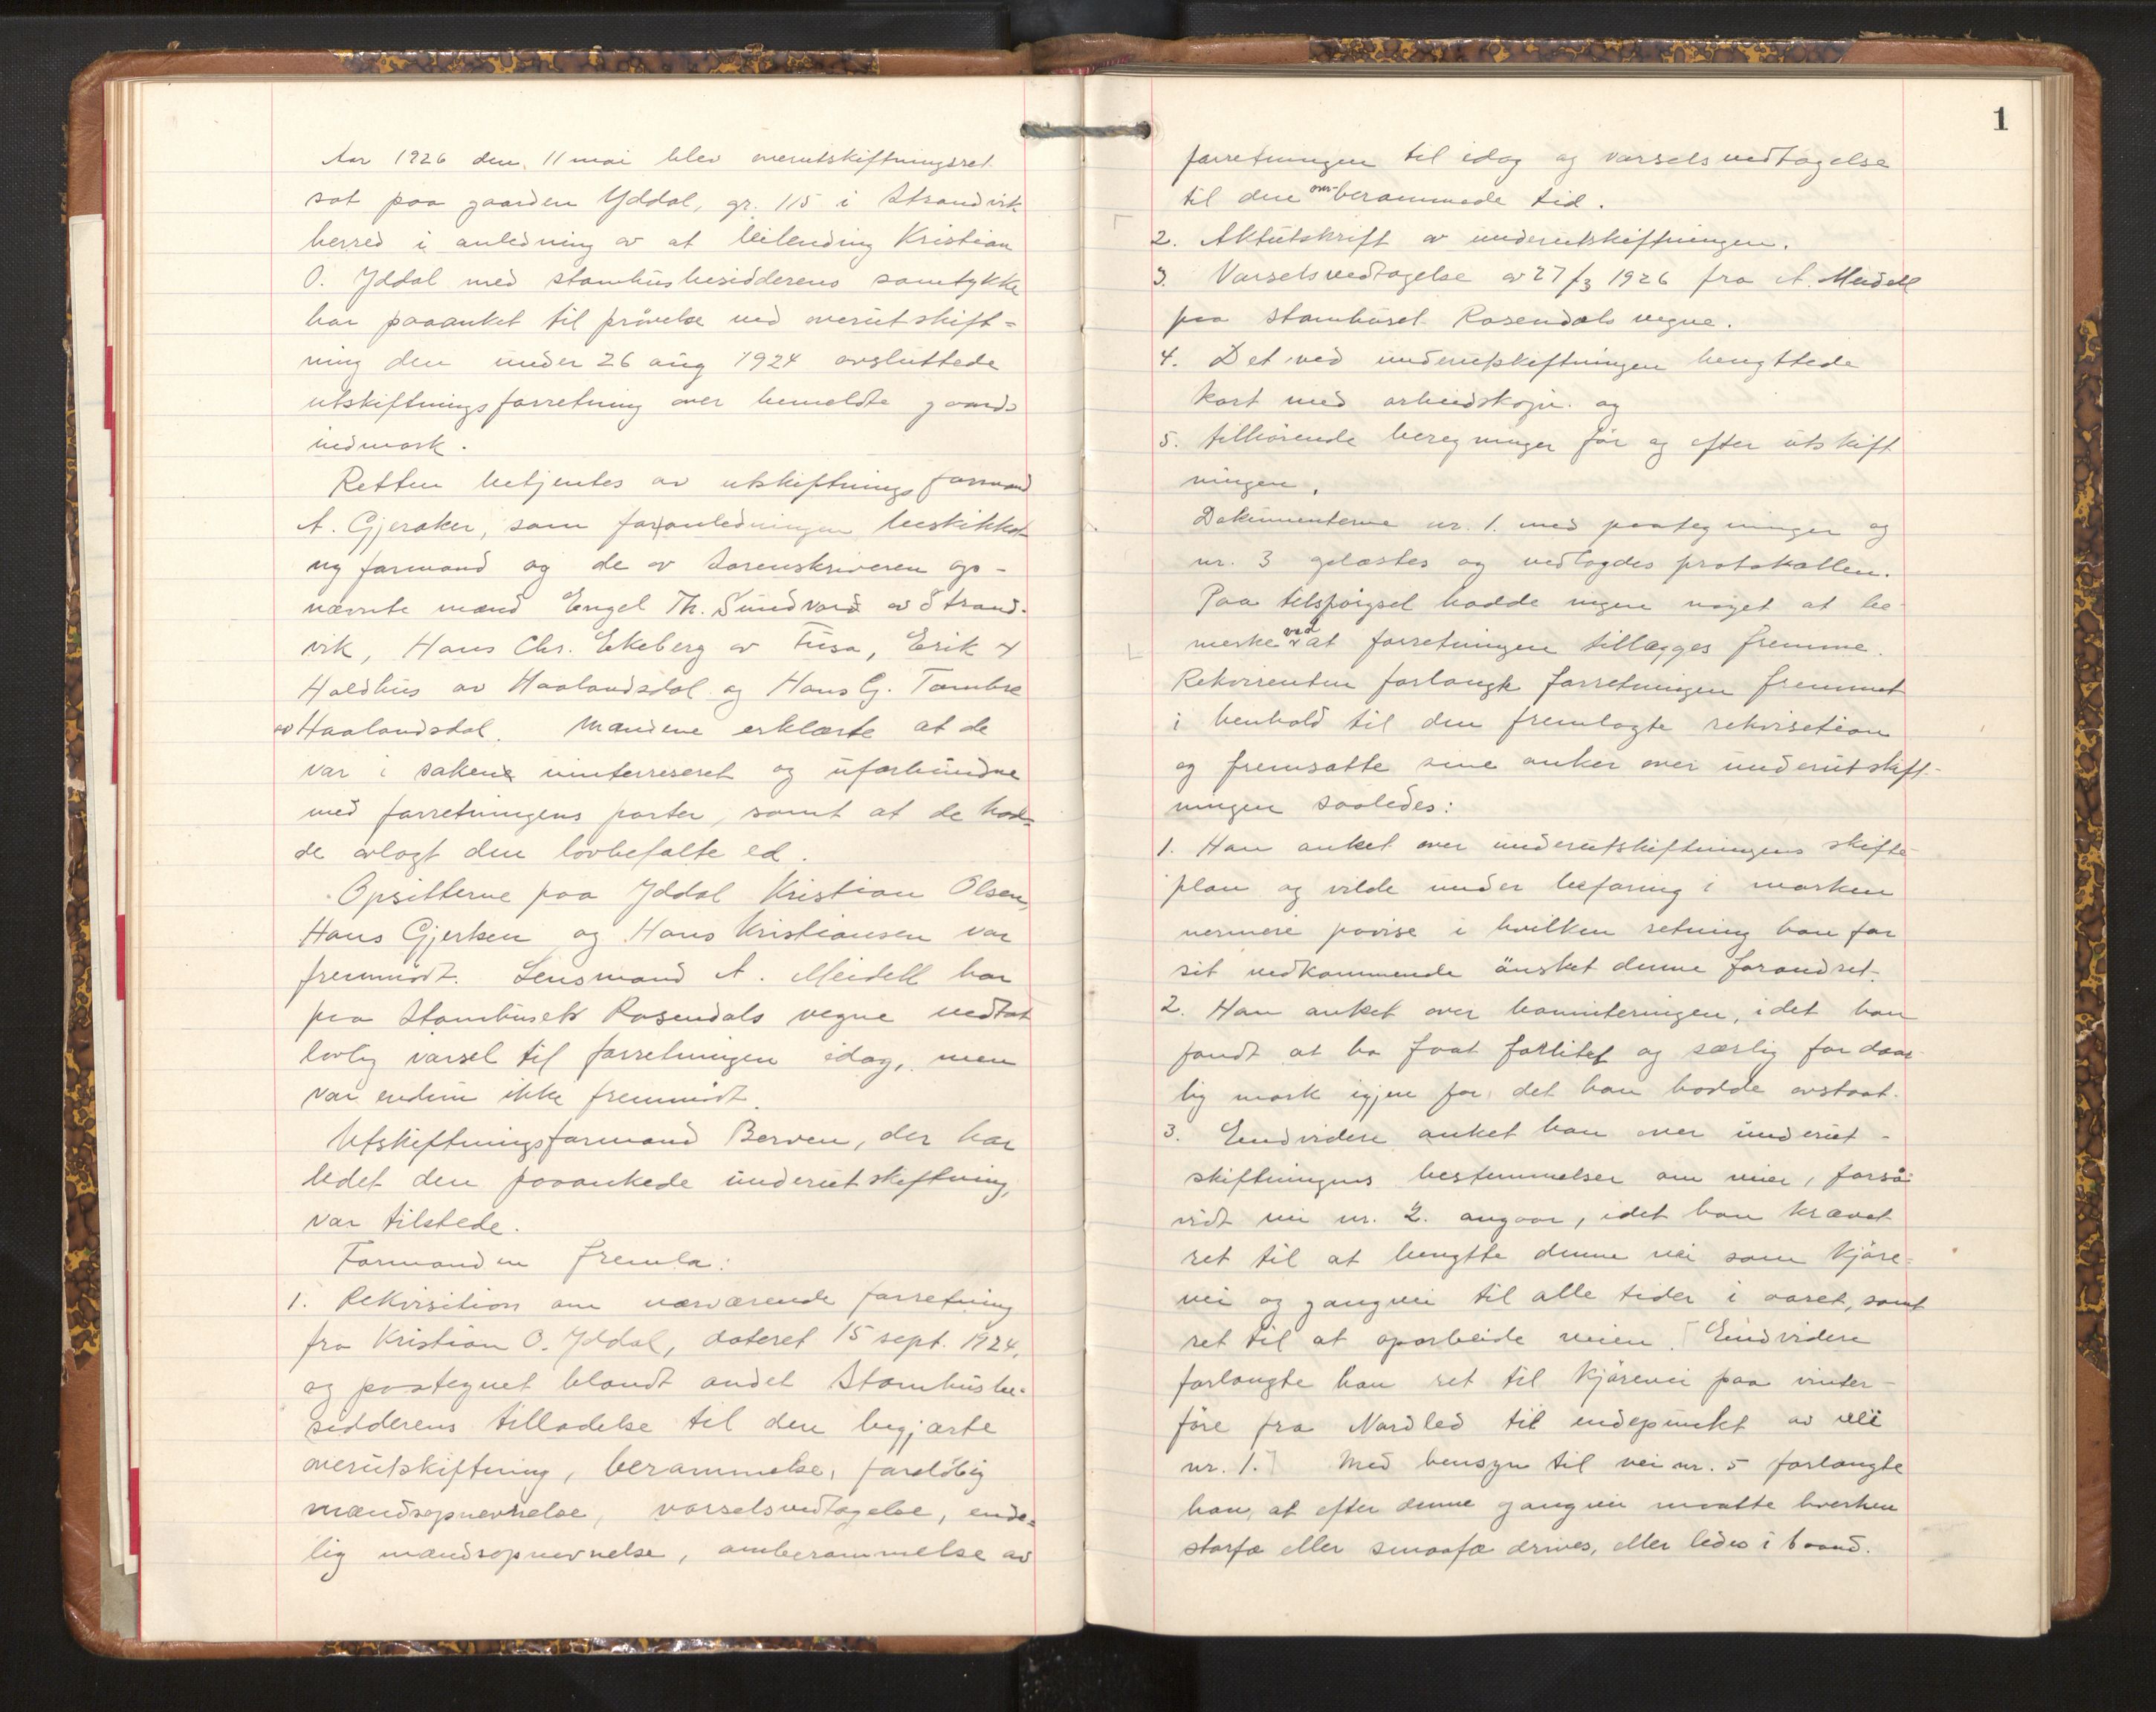 Aar 1926 den 11 mai blev overutskiftningsret
sat paa gaarden Yddal, gr. 115 i Strandvik
herred i anledning av at leilending Kristian
O. Yddal med stamhusbesidderens samtykke
har paaanket til prövelse ved overutskift=
ning den under 26 aug 1924 avsluttede
utskiftningsforretning over bemeldte gaards
indmark.
Retten betjentes av utskiftningsformand
A. Gjeraker, som foranledningen beskikket
ny formand og de av Sorenskriveren op-
nævnte mænd Engel Th. Sundvord av Strand-
vik, Hans Chr. Ekeberg av Fusa, Erik
Holdhus av Haalandsdal og Hans G. Tombre
av Haalandsdal. Mændene erklærte at de
var i saken uinterreseret og uforbundne
med forretningens parter, samt at de had=
de avlagt den lovbefalte ed.
Opsitterne paa Yddal Kristian Olsen,
Hans Gjertsen og Hans Kristiansen var
fremmödt. Lensmand A. Meidell har
paa Stamhusets Rosendals vegne vedtat
lovlig varsel til forretningen idag, men
var endnu ikke fremmödt.
Utskiftningsformand Berven, der har
ledet den paaankede underutskiftning,
var tilstede.
Formanden fremla:
1. Rekvisition om nærværende forretning
fra Kristian O. Yddal, dateret 15 sept. 1924,
og paategnet blandt andet Stamhusbe-
sidderens tilladelse til den begjærte
overutskiftning, berammelse, foreløbig
mændsopnevnelse, varselsvedtagelse, ende=
lig mændsopnevnelse, omberammelse av
1
forretningen til idag og varselsvedtagelse
til den om-berammede tid.
2. Aktutskrift av underutskiftningen.
3. Varselsvedtagelse av 27/3 1926 fra A. Meidell
paa Stamhuset Rosendals vegne.
4. Det ved underutskiftningen benyttede
kart med arbeidskopi og
5. tilhörende beregninger för og efter utskift
ningen.
Dokumenterne nr. 1. med paategninger og
nr. 3 oplæstes og vedlagdes protokollen.
Paa tilspörgsel hadde ingen noget at be-
merke ved at forretningen tillægges fremme.
Rekvirenten forlangte forretningen fremmet
i henhold til den fremlagte rekvisetion
og fremsatte sine anker over underutskift-
ningen saaledes:
1. Han anket over underutskiftningens skifte
plan og vilde under befaring i marken
nermere paavise i hvilken retning han for
sit vedkommende önsket denne forandret.
2. Han anket over boniteringen, idet han
fandt at ha faat forlitet og særlig for daar-
lig mark igjen for det han hadde avstaat.
3. Endvidere anket han over underut-
skiftningens bestemmelser om veier, forså-
vidt vei nr. 2. angaar, idet han krævet
ret til at benytte denne vei som kjøre-
vei og gangvei til alle tider i aaret, samt
ret til at oparbeide veien. [Endvidere
forlangte han ret til kjörevei paa vinter-
före fra Nordled til endepunkt av vei
nr. 1.] Med hensyn til vei nr. 5 forlangte
han, at efter denne gangvei maatte hverken
storfæ eller smaafæ drives, eller ledes i baand.